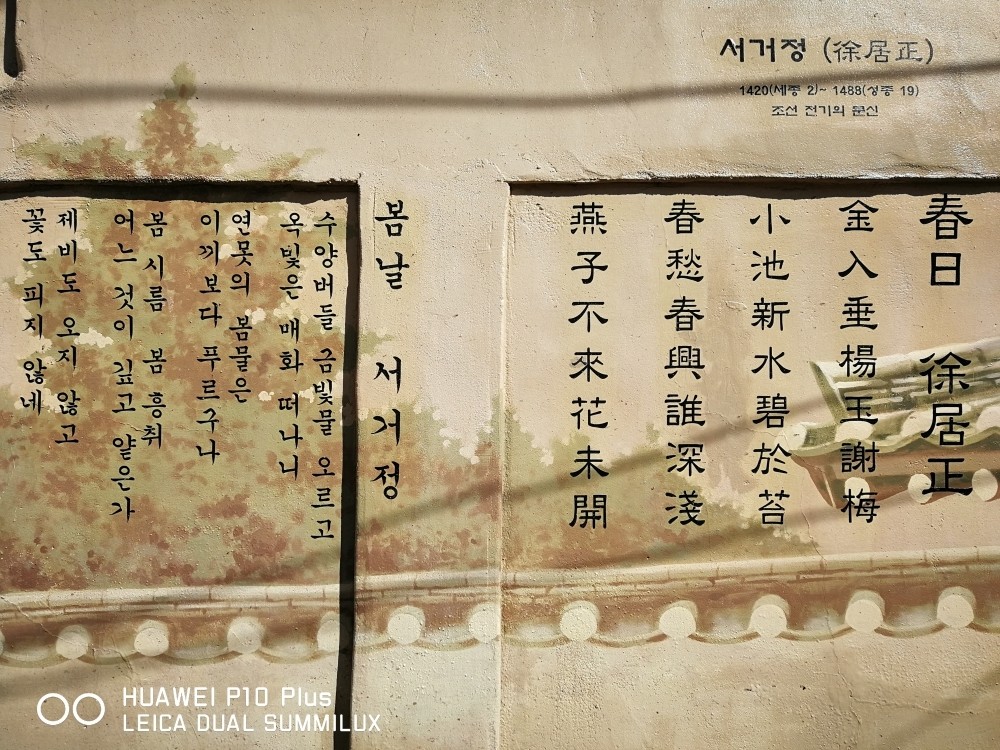 서거정 (徐居正)
1420(세종 2)~ 1488(성종 19)
조선 전기의 문신
春日 徐居正
金入垂楊玉謝梅
小池新水碧於苔
春愁春興誰深淺
燕子不來花未開
봄날 서거정
수양버들 금빛물 오르고
옥빛은 매화 떠나니
연못의 봄물은
이끼보다 푸르구나
봄 시름 봄 흥취
어느 것이 깊고 얕은가
제비도 오지 않고
꽃도 피지 않네
HUAWEI P10 Plus
LEICA DUAL SUMMILUX